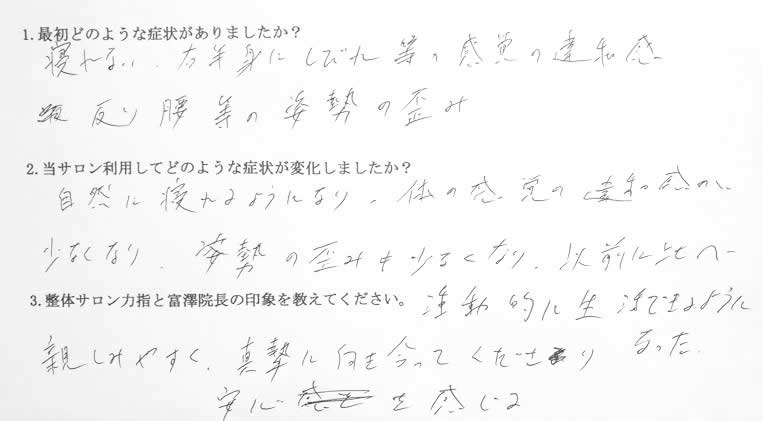 1.最初どのような症状がありましたか？
寝れない、右半身にしびれ等の感覚の違和感
反り腰等の姿勢の歪み
2.当サロン利用してどのような症状が変化しましたか？
自然に寝れるようになり、体の感覚の違和感が、
少なくなり、姿勢の歪みも少なくなり、以前に比べ
活動的に生活できるように
なった。
3.整体サロン力指と富澤院長の印象を教えてください。
親しみやすく、真摯に向き合ってくださり
安心を感じる